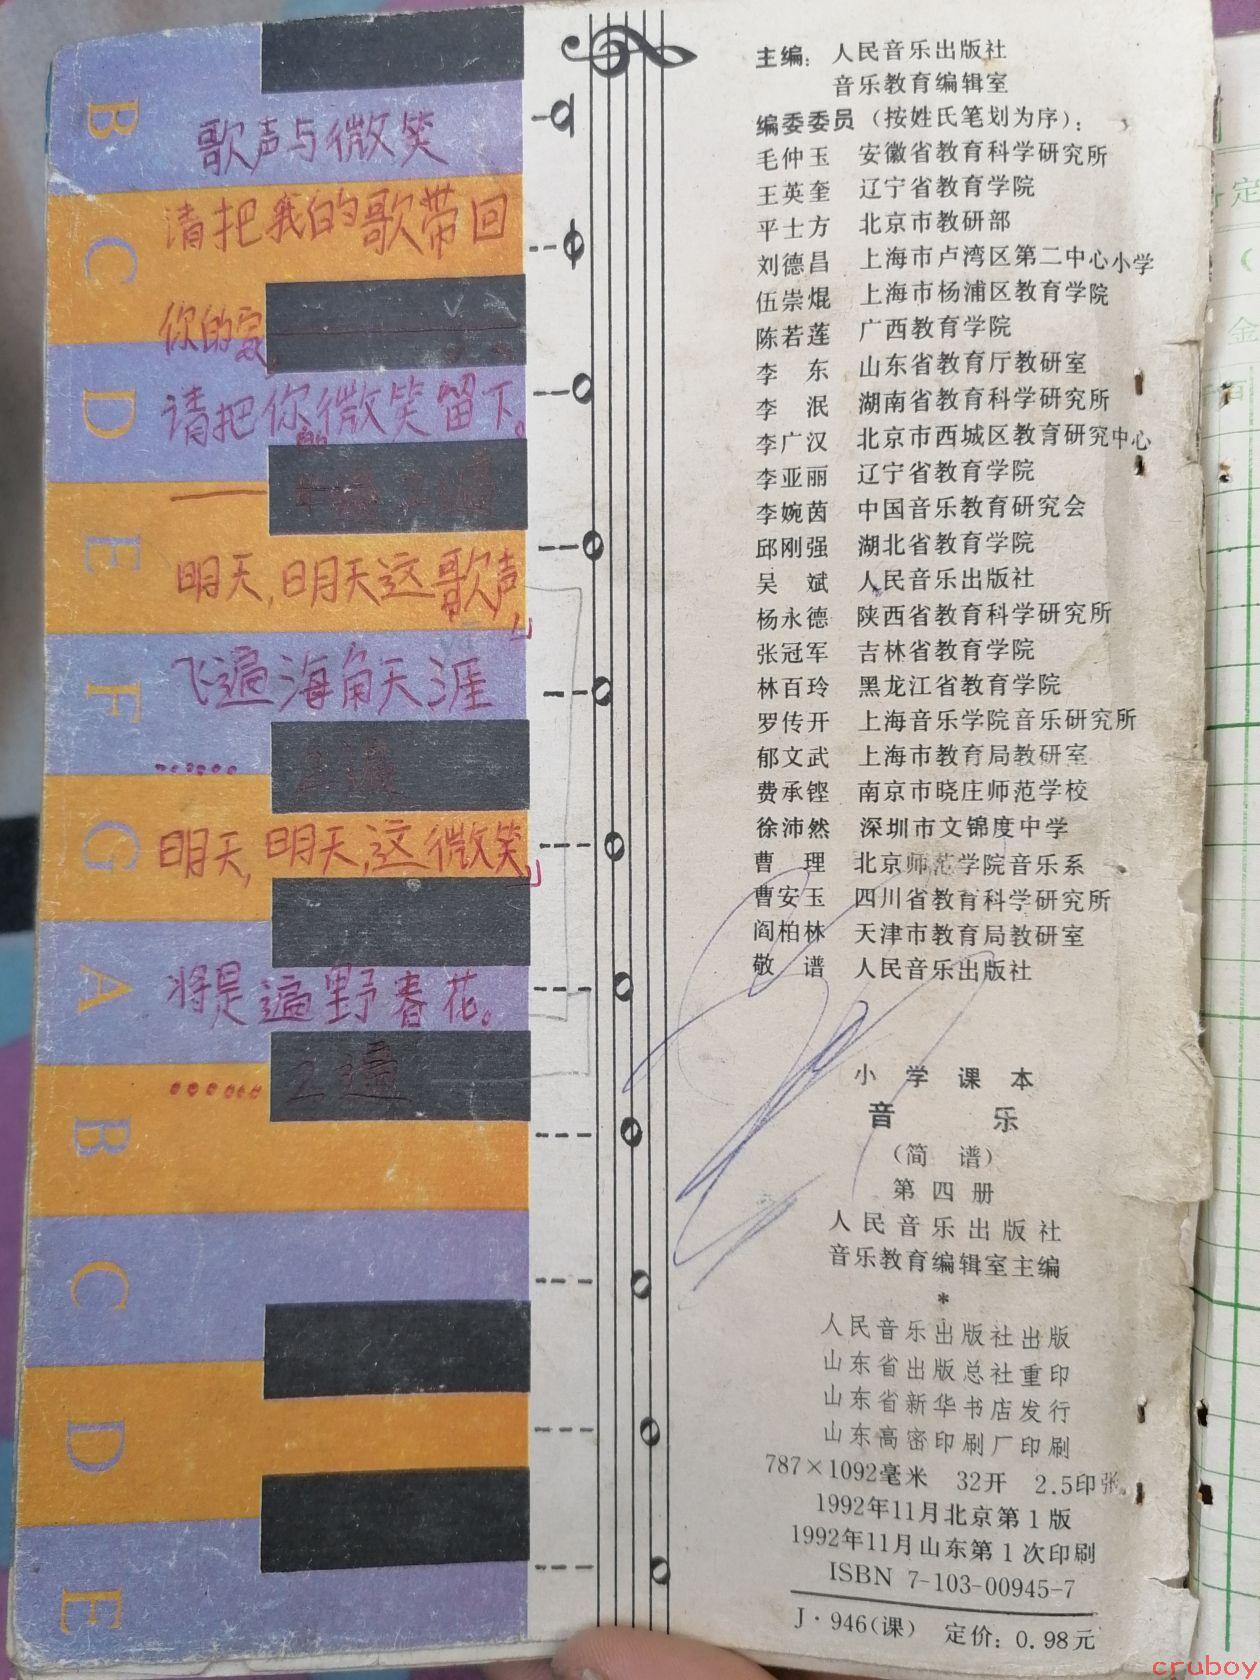 B
C
D
E
F
G
A
B
C
D
E
歌声与微笑
请把我的歌带回
你的家,
请把你的微笑留下。
明天,明天这歌声
飞遍海角天涯
……
明天,明天,这微笑
将是遍野春花。
2遍
……
主编：人民音乐出版社
音乐教育编辑室
编委委员（按姓氏笔划为序）：
毛仲玉 安徽省教育科学研究所
王英奎 辽宁省教育学院
平士方 北京市教研部
刘德昌 上海市卢湾区第二中心小学
伍崇焜 上海市杨浦区教育学院
陈若莲 广西教育学院
李 东 山东省教育厅教研室
李 泯 湖南省教育科学研究所
李广汉 北京市西城区教育研究中心
李亚丽 辽宁省教育学院
李婉茵 中国音乐教育研究会
邱刚强 湖北省教育学院
吴 斌 人民音乐出版社
杨永德 陕西省教育科学研究所
张冠军 吉林省教育学院
林百玲 黑龙江省教育学院
罗传开 上海音乐学院音乐研究所
郁文武 上海市教育局教研室
费承铿 南京市晓庄师范学校
徐沛然 深圳市文锦度中学
曹 理 北京师范学院音乐系
曹安玉 四川省教育科学研究所
阎柏林 天津市教育局教研室
敬 谱 人民音乐出版社
小学课本
音 乐
（简 谱）
第四册
人民音乐出版社
音乐教育编辑室主编
*
人民音乐出版社出版
山东省出版总社重印
山东省新华书店发行
山东高密印刷厂印刷
787×1092毫米 32开 2.5印张
1992年11月北京第1版
1992年11月山东第1次印刷
ISBN 7-103-00945-7
J·946(课) 定价：0.98元
定
金
cruboy